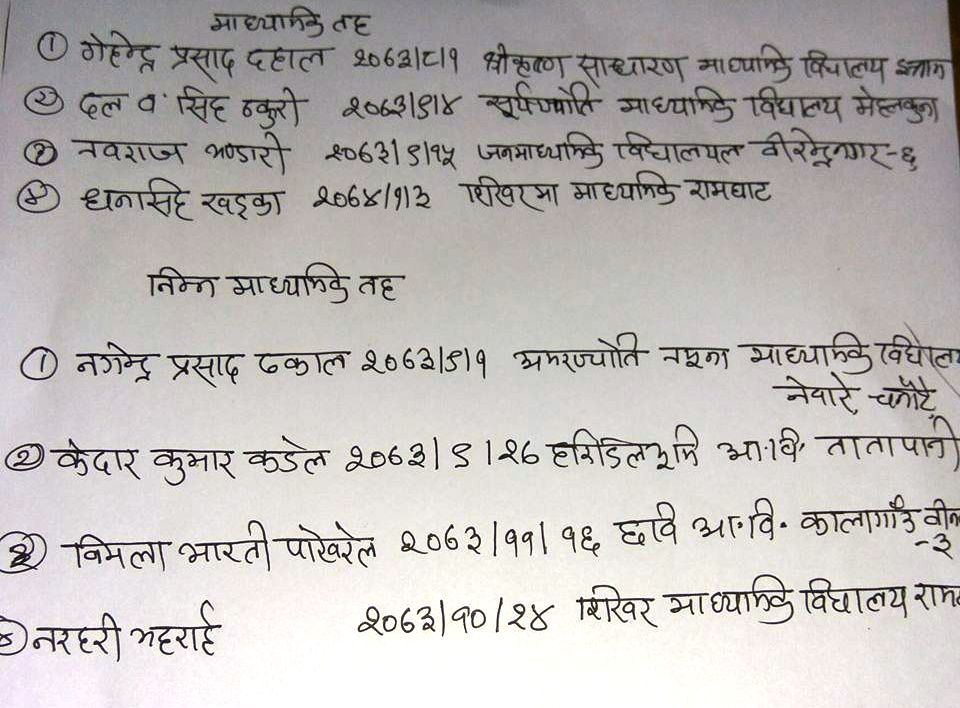 माध्यमिक तह
① गेहेन्द्र प्रसाद दहाल २०६३/८/१ श्रीकृष्ण साधारण माध्यमिक विद्यालय
② दल ब. सिंह ठकुरी २०६३/९/४ सूर्यज्योति माध्यमिक विद्यालय मेहेलकुना
③ नवराज भण्डारी २०६३/९/१५ जनमाध्यमिक विद्यालयल वीरेन्द्रनगर-६
④ धनसिंह खड्का २०६४/१/३ शिखिर मा माध्यमिक रामघाट
निम्न माध्यमिक तह
① नगेन्द्र प्रसाद ढकाल २०६३/९/१ अमरज्योति नमूना माध्यमिक विद्यालय
नेवारे,
② केदार कुमार कडेल २०६३/९/२६ मा.वि. तातापानी
③ विमला भारती पोखरेल २०६३/११/१६ मा.वि. कालागाउँ
-३
④ नरहरी भट्टराई २०६३/१०/२४ शिखिर माध्यमिक विद्यालय